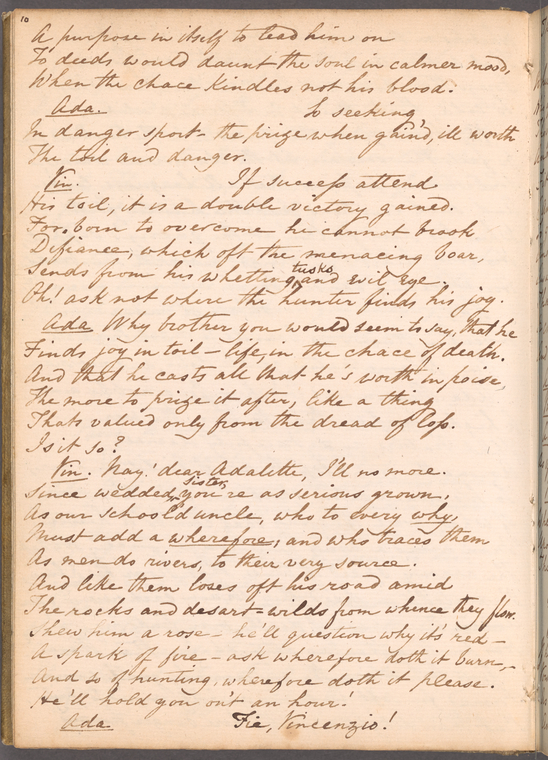 10
A purpose in itself to lead him on
To deeds would daunt the soul in calmer mood,
When the chace kindles not his blood.
Ada. So seeking
In danger sport - the prize when gain'd, ill worth
The toil and danger.
Vin. If success attend
His toil, it is a double victory gained.
For, born to overcome he cannot brook
Defiance, which oft the menacing boar,
Sends from his whetting tusks and evil eye,
Oh! ask not where the hunter finds his joy.
Ada Why brother you would seem to say, that he
Finds joy in toil - life, in the chace of death.
And that he casts all that he's worth in poise,
The more to prize it after, like a thing
Thats valued only from the dread of loss.
Is it so?
Vin. Nay! dear Adalette, I'll no more.
Since wedded, sister, you're as serious grown,
As our school'd uncle, who to every why,
Must add a wherefore, and who traces them
As men do rivers, to their very source.
And like them loses oft his road amid
The rocks and desart-wilds from whence they flow.
Shew him a rose - he'll question why it's red -
A spark of fire - ask wherefore doth it burn, -
And so of hunting, wherefore doth it please.
He'll hold you on't an hour!
Ada Fie, Vincenzio!